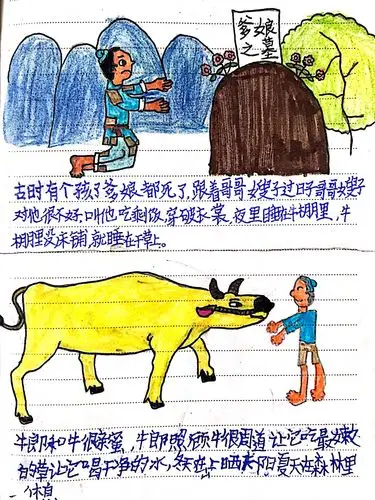 爹娘
之墓
古时有个孩子爹娘都死了,跟着哥哥嫂子过日子哥哥嫂子
对他很不好,叫他吃剩饭,穿破衣裳,夜里睡在牛棚里,牛
棚里没床铺,就睡在干草上。
牛郎和牛很亲蜜,牛郎照顾牛很周道,让它吃最嫩
的草,让它喝干净的水,冬天在山上晒太阳,夏天在森林里
休息